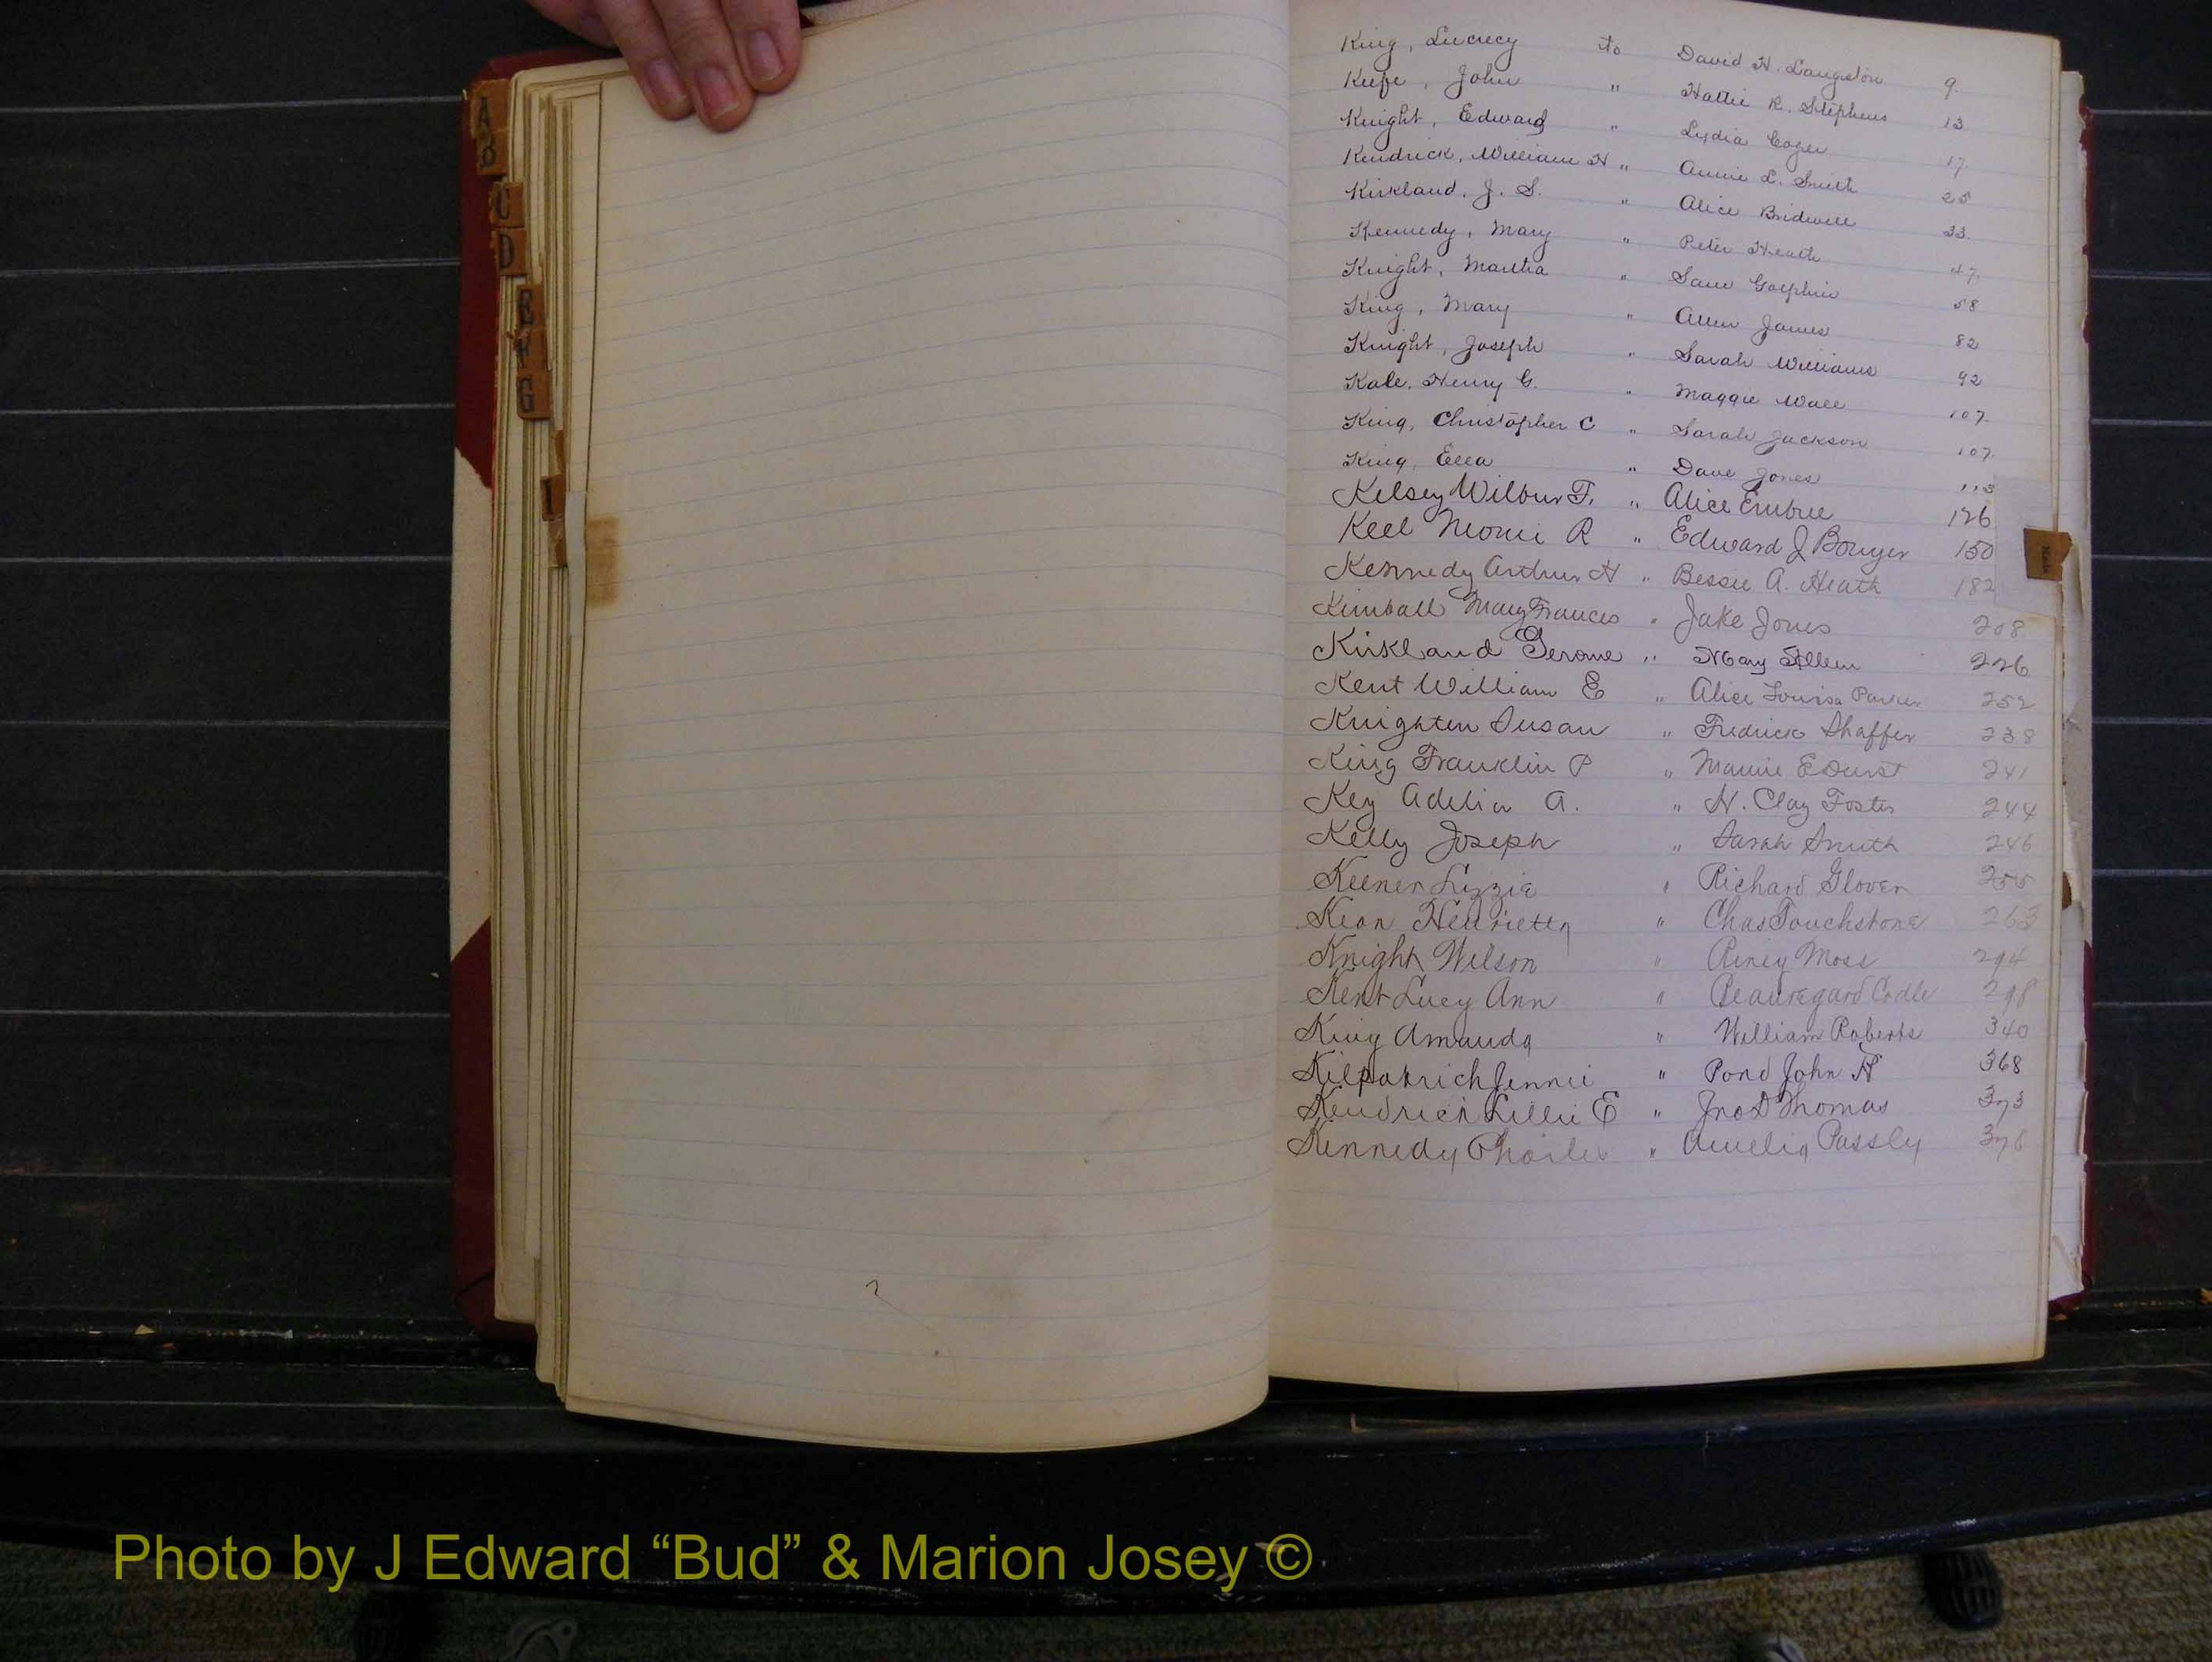 A
B
C
D
E
F
G
I
King, Lucrecy to David H. Langston 9
Keefe, John " Hattie R. Stephens 13
Knight, Edward " Lydia Coger 17
Kendrick, William H " Annie L. Smith 25
Kirkland, J. S. " Alice Bridwell 33
Kennedy, Mary " Peter Heath 47
Knight, Martha " Sam Golphin 58
King, Mary " Allen James 82
Knight, Joseph " Sarah Williams 92
Kale, Henry G. " Maggie Wall 107
King, Christopher C " Sarah Jackson 107
King, Ella " Dave Jones 113
Kelsey Wilbur F. " Alice Embree 126
Keel Neomi R " Edward J Bouyer 150
Kennedy Arthur H " Bessie A. Heath 182
Kimball Mary Frances " Jake Jones 208
Kirkland Gerome " Mary Allen 226
Kent William E " Alice Louisa Parker 252
Knighten Susan " Fredrick Shaffer 238
King Franklin P " Mamie E Durst 241
Key Adelia A. " H. Clay Foster 244
Kelly Joseph " Sarah Smith 246
Keener Lizzie " Richard Glover 255
Kean Henrietta " Chas Touchstone 263
Knight Wilson " Riney Moss 294
Kent Lucy Ann " Beauregard Codle 298
King Amanda " William Roberts 340
Kilpatrick Jennie " Pond John H 368
Kendrick Lillie E " Jno D Thomas 373
Kennedy Charles " Amelia Passly 378
Photo by J Edward “Bud” & Marion Josey ©